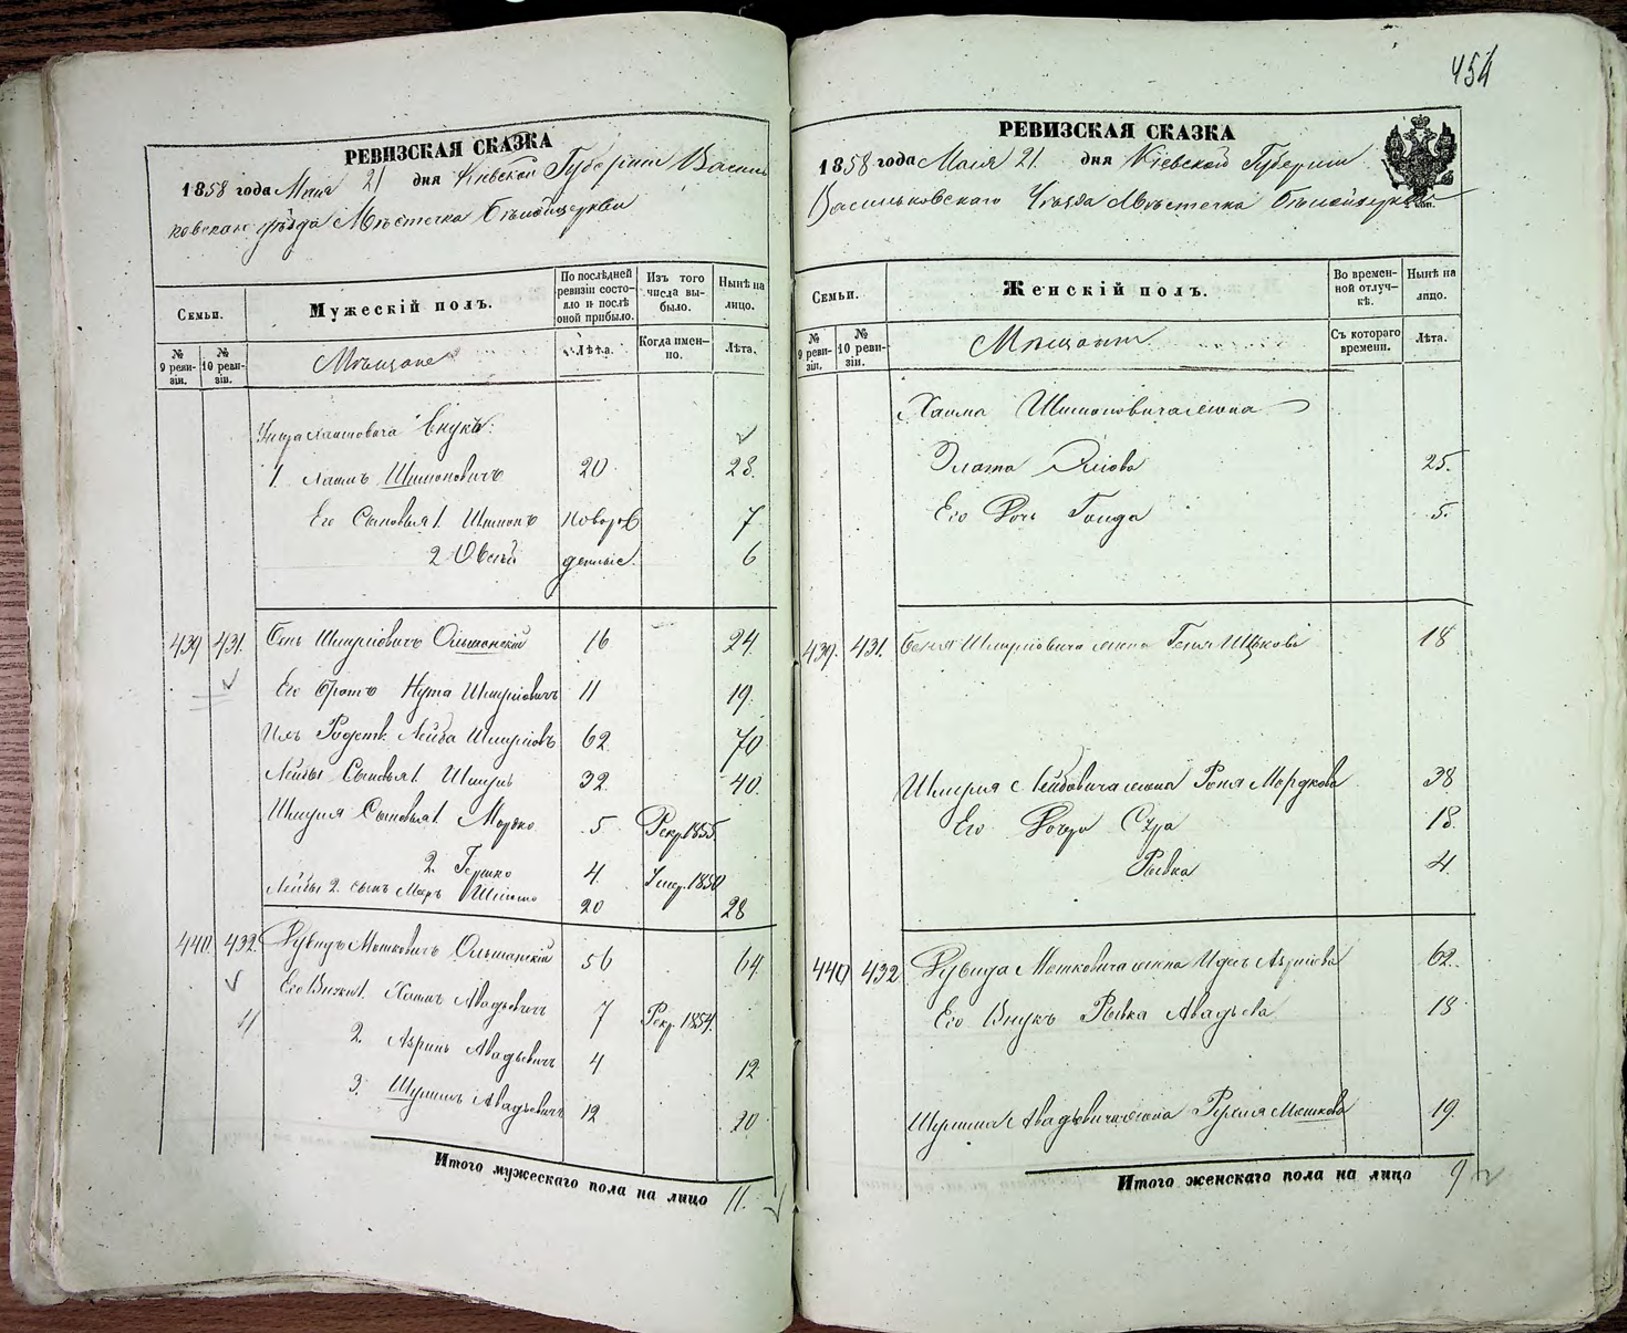 РЕВИЗСКАЯ СКАЗКА
1858 года Мая 21 дня Кіевской Губерніи Василь
ковскаго уѣзда Мѣстечка Бѣлойцеркви
Семьи.
Мужескій полъ.
По послѣдней ревизіи состояло и послѣ оной прибыло.
Изъ того числа выбыло.
Нынѣ на лицо.
№ 9 ревизіи.
№ 10 ревизіи.
Мѣщане
Лѣта.
Когда именно.
Лѣта.
Внукъ:
1. Шимоновичъ 20 28.
Его Сыновья 1. Шимонъ новорож 7
2 Овсѣй денные. 6
439 431. Шмуліовичъ Ольшанскій 16 24.
Его братъ Нута Шмуліовичъ 11 19.
Ихъ Родств. Лейба Шмуліовъ 62. 70
Лейбы Сыновья 1. Шмуль 32. 40.
Шмуля Сыновья 1. Мордко 5 Рекр. 1855.
2. Гершко 4. Умер. 1850
Лейбы 2. сынъ 20 28
440. 432. Мошковичъ Ольшанскій 56 64.
Его Внуки 1. Авадьевичъ 7 Рекр. 1854.
2. Авадьевичъ 4 12
3. Авадьевичъ 12 20
Итого мужескаго пола на лицо 11.
454
РЕВИЗСКАЯ СКАЗКА
1858 года Маія 21. дня Кіевской Губерніи
Васильковскаго Уѣзда Мѣстечка Бѣлойцеркви
Семьи.
Женскій полъ.
Во временной отлучкѣ.
Нынѣ на лицо.
№ 9 ревизіи.
№ 10 ревизіи.
Мѣщане
Съ котораго времени.
Лѣта.
Шимоновича жена
Злата 25.
Его Дочь Голда 5.
439. 431. Шмуліовича жена Геня 18
Шмуля Лейбовича жена Мордкова 38
Его Дочери Сура 18.
Рывка 4.
440 432 Мошковича жена 62.
Его Внука Рывка Авадьева 18
Авадьевича жена Рухля Мошкова 19.
Итого женскаго пола на лицо 9